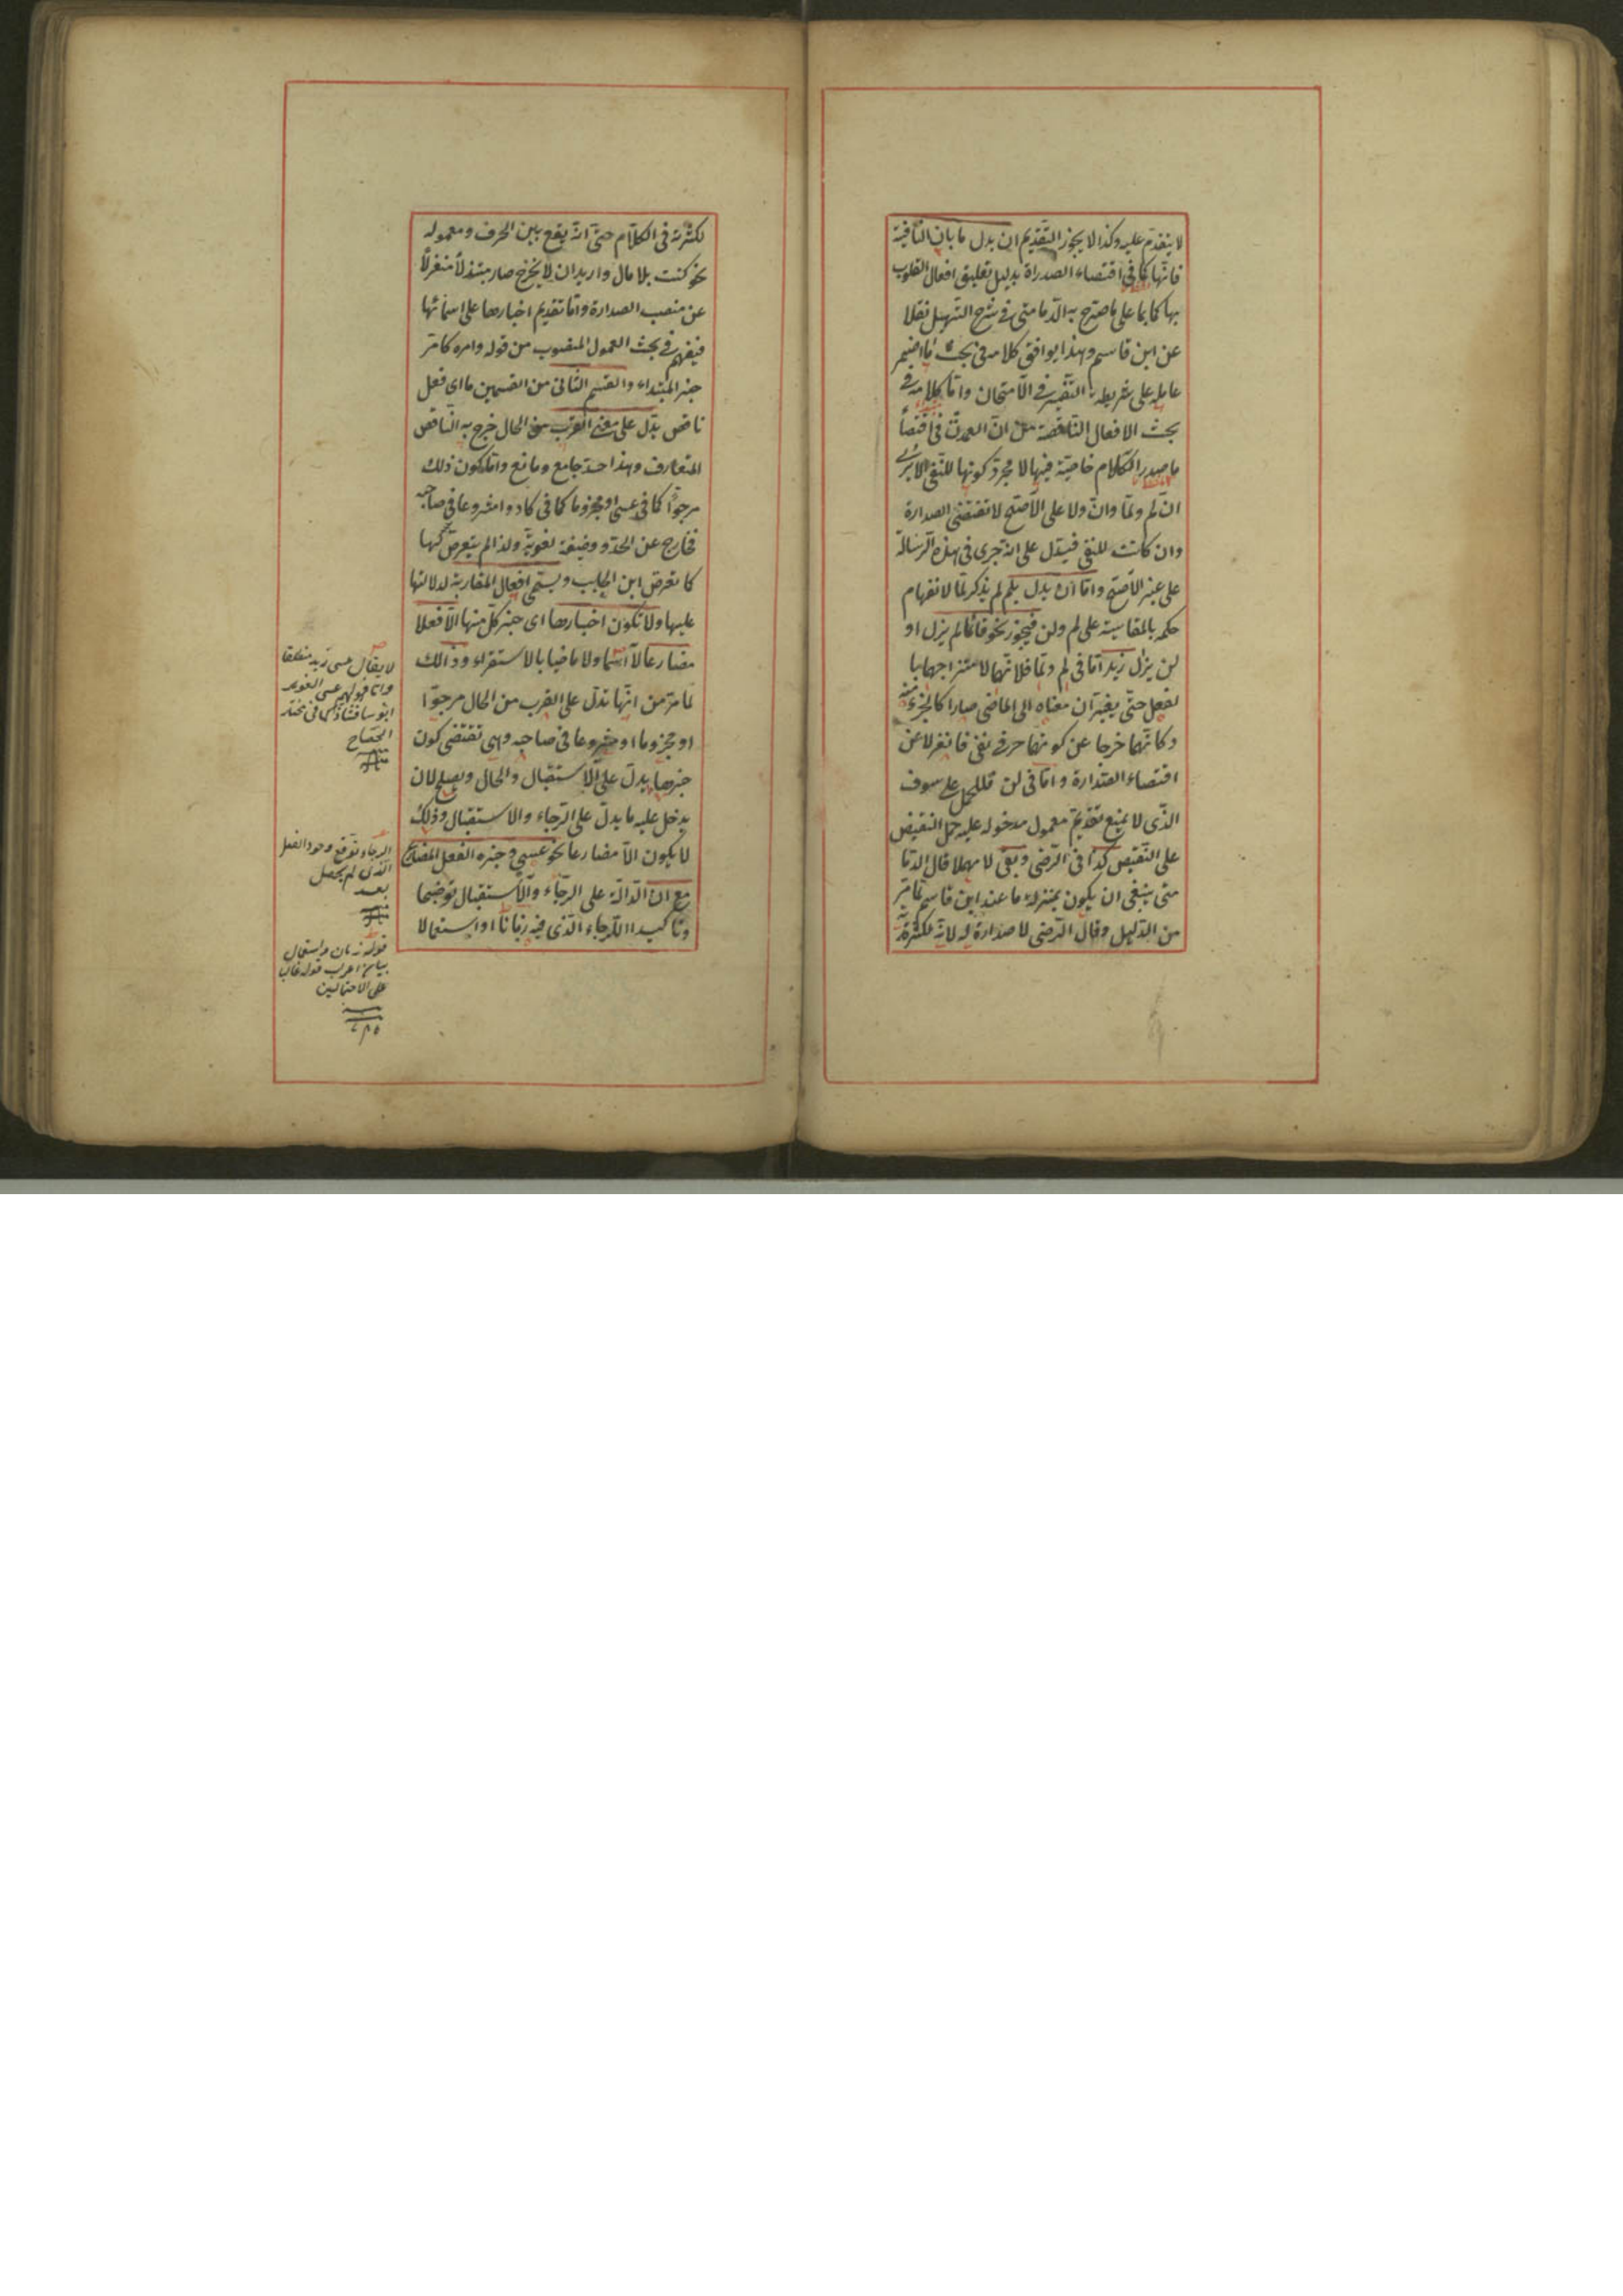 لا يتقدم عليه وكذا لا يجوز التقديم ان بدل ما بان النافية
فانها كما فى اقتضاء الصدارة بدليل تعليق افعال القلوب
بها كما بما على ما صرح به الدمامينى فى شرح التسهيل نقلا
عن ابن قاسم وهذا يوافق كلامه فى بحث ما اضمر
عامله على شريطة التفسير فى الامتحان واما كلامه فى
بحث الافعال الناقصة من ان العمدة فى اقتضاء
ما صدر الكلام خاصية فيها لا مجرد كونها للنفى الا يرى
ان لم ولما وان ولا على الاصح لا تقتضى الصدارة
وان كانت للنفى فيدل على انه جرى فى هذه الرسالة
على غير الاصح واما ان بدل بلم لم يذكر لما لانفهام
حكمه بالمقايسة على لم ولن فيجوز نحو قائما لم يزل او
لن يزال زيد اما فى لم ولما فلانهما لامتزاجهما با
لفعل حتى يغيران معناه الى الماضى صارا كالجزء منه
وكانهما خرجا عن كونهما حرفى نفى فانعزلا عن
اقتضاء الصدارة واما فى لن فللحمل على سوف
الذى لا يمنع تقديم معمول مدخوله عليه حمل النقيض
على النقيض كذا فى الرضى وبقى لا مهملا قال الدما
مينى ينبغى ان يكون بمنزلة ما عند ابن قاسم لما مر
من الدليل وقال الرضى لا صدارة له لانه لكثرته
لكثرته فى الكلام حتى انه يقع بين الحرف ومعموله
نحو كنت بلا مال واريد ان لا يخرج صار مبتذلا منعزلا
عن منصب الصدارة واما تقديم اخبارها على اسمائها
فيفهم فى بحث المعمول المنصوب من قوله وامره كامر
خبر المبتداء والقسم الثانى من القسمين ما اى فعل
ناقص يدل على معنى القرب من الحال خرج به الناقص
المتعارف وهذا حد جامع ومانع واما كون ذلك
مرجوا كما فى عسى او مجزوما كما فى كاد وامشروعا فى صاحبه
فخارج عن الحد و وضيفة لغوية ولذا لم يتعرض لها
كما تعرض ابن الحاجب ويسمى افعال المقاربة لدلالتها
عليها ولا تكون اخبارها اى خبر كل منها الا فعلا
مضارعا لا اسما ولا ماضيا بالاستقراء وذالك
لما مر من انها تدل على القرب من الحال مرجوا
او مجزوما او مشروعا فى صاحبه وهى تقتضى كون
خبرها يدل على الاستقبال والحال ويصلح لان
يدخل عليه ما يدل على الرجاء والاستقبال وذلك
لا يكون الا مضارعا نحو عسى وخبره الفعل المضارع
مع ان الدالة على الرجاء والاستقبال توضيحا
وتاكيدا للرجاء الذى فيه زمانا او استعمالا
لا يقال عسى زيد منطلقا
واما قولهم عسى الغوير
ابؤسا فشاذ كما فى مختار
الصحاح
الرجاء توقع وجود الفعل
الذى لم يحصل
بعد
قوله زمان واستعمال
على الاحتمالين